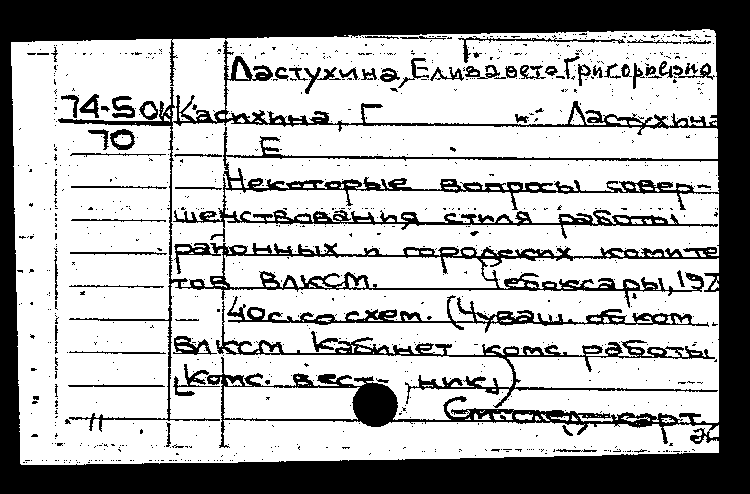 Ластухина, Елизавета Григорьевна
74-5 ок Касихина, Г и Ластухина
70 Е
Некоторые вопросы совер-
шенствования стиля работы
районных и городских комите
тов ВЛКСМ. Чебоксары, 197
40с. со схем. (Чуваш. обком
ВЛКСМ. Кабинет комс. работы
[Комс. вест- ник])
См. след. карт.
11